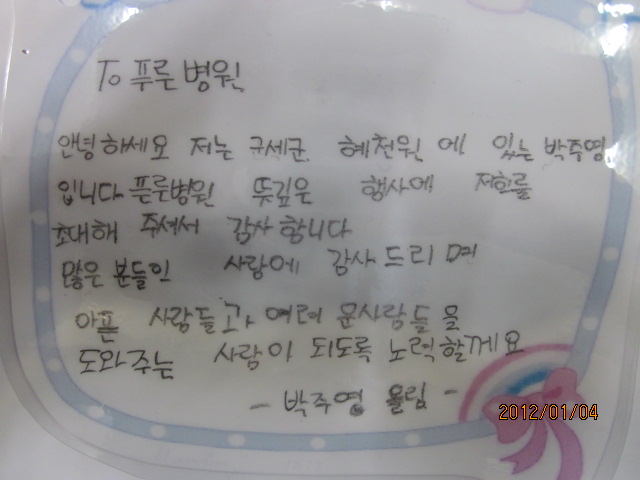 To 푸른병원
안녕하세요 저는 구세군. 혜천원 에 있는 박주영
입니다 푸른병원 뚜깊은 행사에 저희를
초대해 주셔서 감사 합니다
많은 분들의 사랑에 감사 드리 며
아픈 사람들과 여러 운사람들을
도와주는 사람이 되도록 노력할께요
- 박주영 올림 -
2012/01/04